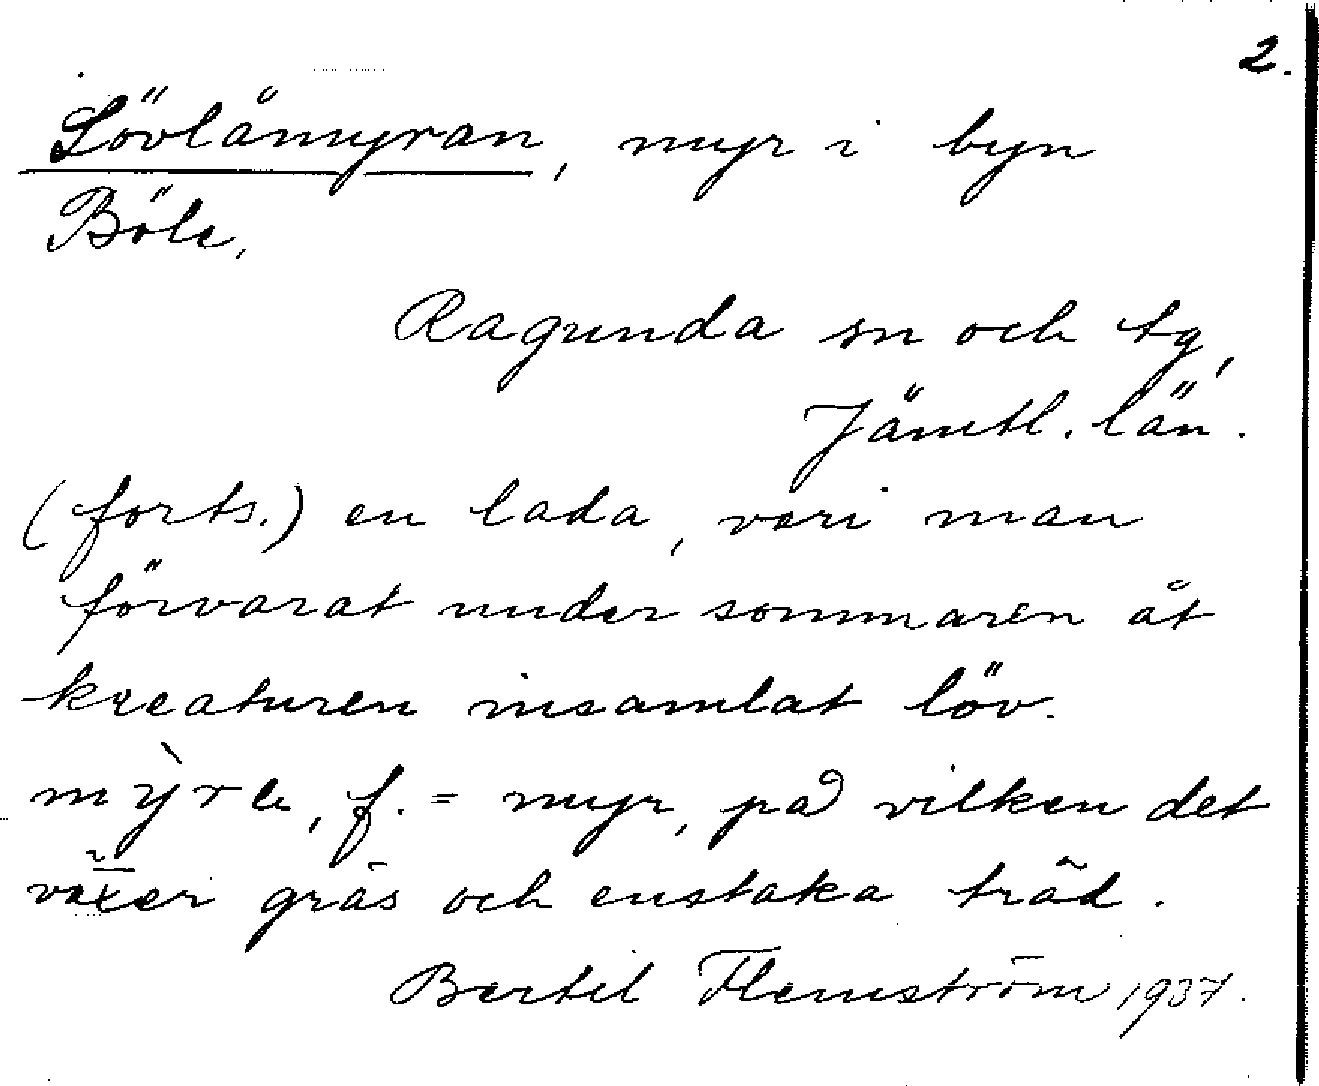 2.
Lövlåmyran, myr i byn
Böle,
Ragunda sn och tg,
Jämtl. län.
(forts.) en lada, vari man
förvarat under sommaren åt
kreaturen insamlat löv.
mỳrɐ, f. = myr, på vilken det
växer gräs och enstaka träd.
Bertil Flemström 1937.